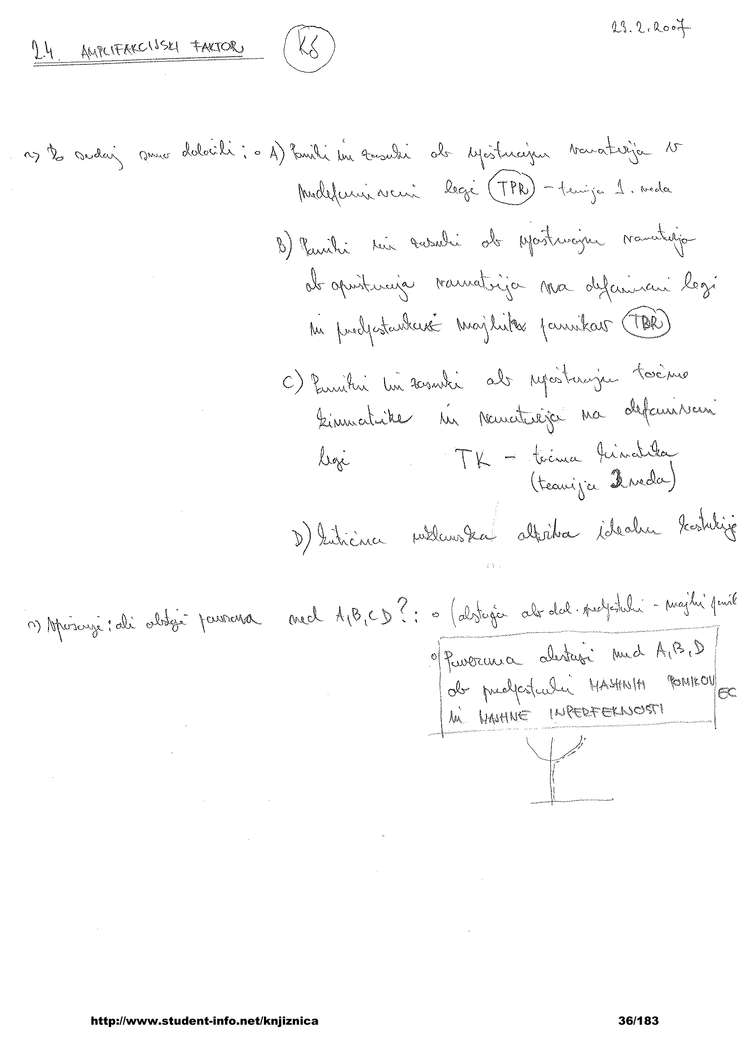 23.2.2007
2.4 AMPLIFAKCIJSKI FAKTOR K8
Do sedaj smo določili: A) Pomiki in zasuki ob upoštevanju ravnotežja v
nedeformirani legi TPR - teorija 1. reda
B) Pomiki in zasuki ob upoštevanju ravnotežja
ob ravnotežja na deformirani legi
in predpostavki majhnih pomikov TBR
C) Pomiki in zasuki ob upoštevanju točne
kinematike in ravnotežja na deformirani
legi TK - točna kinematika
(teorija 3 reda)
D) kritična uklonska obtežba idealne
Vprašanje: ali obstaja povezava med A, B, C D?: (obstaja ob dod. predpostavki - majhni
Povezava obstaja med A, B, D
ob predpostavki MAJHNIH POMIKOV
in MAJHNE INPERFEKNOSTI
EC
http://www.student-info.net/knjiznica 36/183